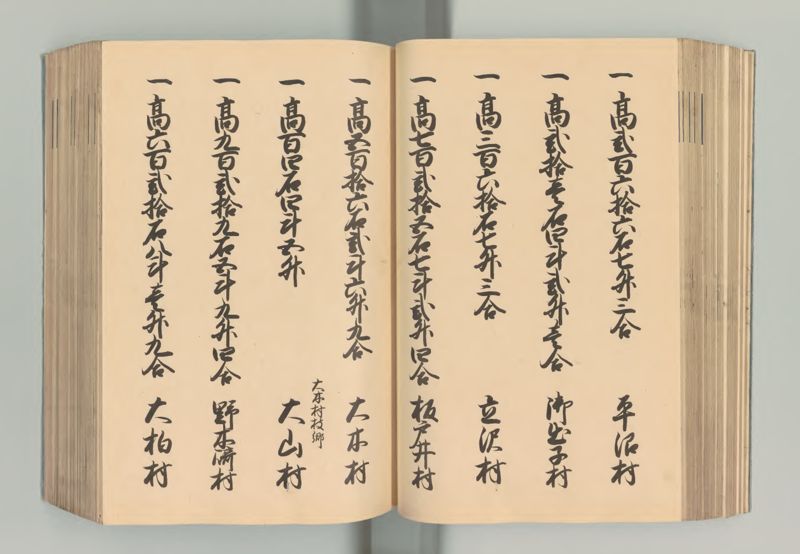 一 高弐百六拾六石七升三合 平沼村
一 高弐拾壱石四斗弐升壱合 御出子村
一 高三百六拾石七升三合 立沢村
一 高七百弐拾五石七斗弐升四合 板戸井村
一 高五百拾六石弐斗六升九合 大木村
大木村枝郷
一 高百四石四斗五升 大山村
一 高九百弐拾九石五斗九升四合 野木崎村
一 高六百弐拾石八斗壱升九合 大柏村